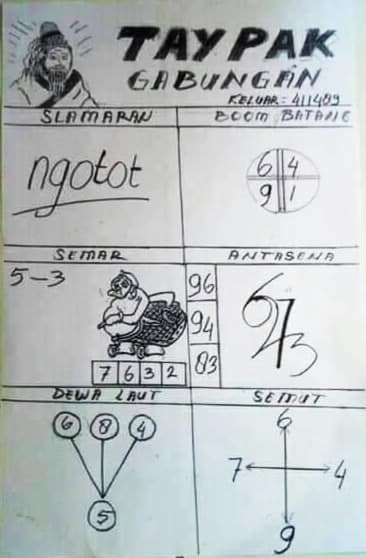 TAYPAK
GABUNGAN
KELUAR = 411489
SLAMARAN
BOOM BATANG
ngotot
6 4
9 1
SEMAR
ANTASENA
5-3
96
94
83
7 6 3 2
DEWA LAUT
SEMUT
6 8 4
5
6
7 4
9